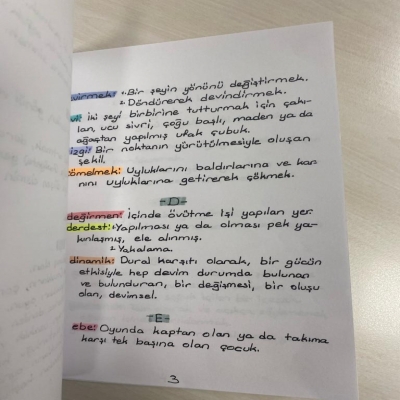 çevirmek: 1. Bir şeyin yönünü değiştirmek.
2. Döndürerek devindirmek.
çivi: iki şeyi birbirine tutturmak için çakı-
lan, ucu sivri, çoğu başlı, maden ya da
ağaçtan yapılmış ufak çubuk.
çizgi: Bir noktanın yürütülmesiyle oluşan
şekil.
çömelmek: Uyluklarını baldırlarına ve kar-
nını uyluklarına getirerek çökmek.
-D-
değirmen: içinde övütme işi yapılan yer.
derdest: 1. Yapılması ya da olması pek ya-
kınlaşmış, ele alınmış.
2. Yakalama.
dinamik: Dural karşıtı olarak, bir gücün
etkisiyle hep devim durumda bulunan
ve bulunduran, bir değişmesi, bir oluşu
olan, devimsel.
-E-
ebe: Oyunda kaptan olan ya da takıma
karşı tek başına olan çocuk.
3